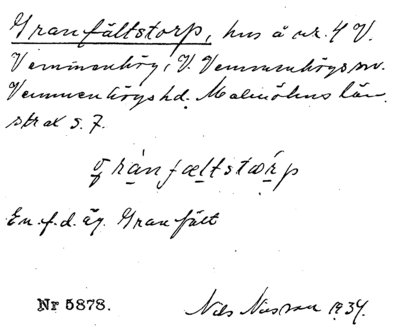 Granfältstorp, hus å nr. 4 V.
Vemmenhög, V. Vemmenhögs sn.
Vemmenhögs hd. Malmöhus län.
strax s. 7.
gránfæltstωŕp
En f.d. äg. Granfält
Nr 5878.
Nils Nilsson 1934.